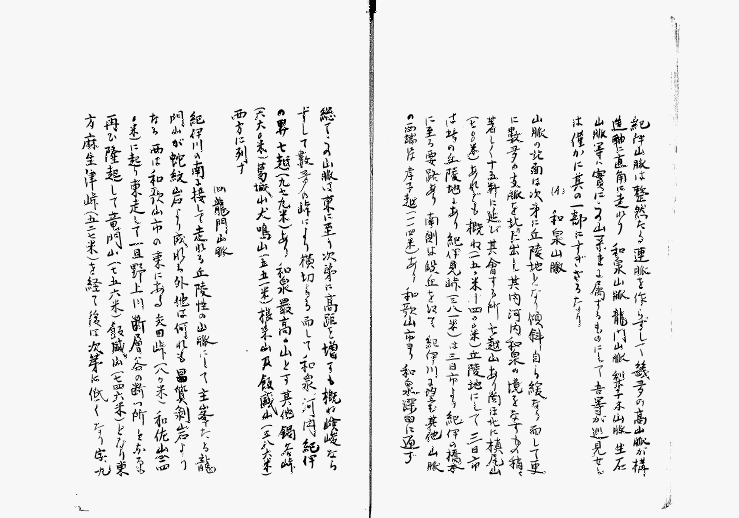 紀伊山脈は整然たる連脈を作らずして幾多の高山脈が構
造軸に直角に走り 和泉山脈 龍門山脈 生石
山脈等に実に 山 に属するものにして吾等が巡見せし
は僅かに其の一部にすぎざるなり
(イ) 和泉山脈
山脈の北面は次第に丘陵地となり傾斜自ら緩なり而して更
に数多の支脈を北に出し其内河内和泉の境をなすもの稍々
著しく十五粁に延び其會する所七越山あり南は北に槇尾山
(七〇〇米)あれども概ね(一五〇米―四〇〇米)丘陵地にして三日市
は此の丘陵地にあり紀伊見峠(三八一米)は三日市より紀伊の橋本
に至る要路あり南側は段丘を以て紀伊川に望む其他山脈
の西端に孝子越(一一四米)あり和歌山市より和泉深田に通ず
総て 山脈は東に至り次第に高距を増すも概ね峻嶮なら
ずして数多の峠により横切らる而して和泉、河内、紀伊
の界七越(九七九米)あり和泉最高の山とす其他鍋谷峠
(六六〇米)葛城山犬鳴山(五五一米) 及飯盛山(三八六米)
西方に列す
(ロ)龍門山脈
紀伊川の南に接して走れる丘陵性山脈にして主峯たる龍
門山が蛇紋岩より成れる外他は何れも 岩より
なる西は和歌山市の東にある矢田峠(八〇米)和佐山(二四
〇米)に起り東走して一旦野上川断層谷の断つ所となるも
再び隆起して竜門山(七五六米)飯盛山(七四六米)となり東
方麻生津峠(五二七米)を経て後は次第に低くなり 九